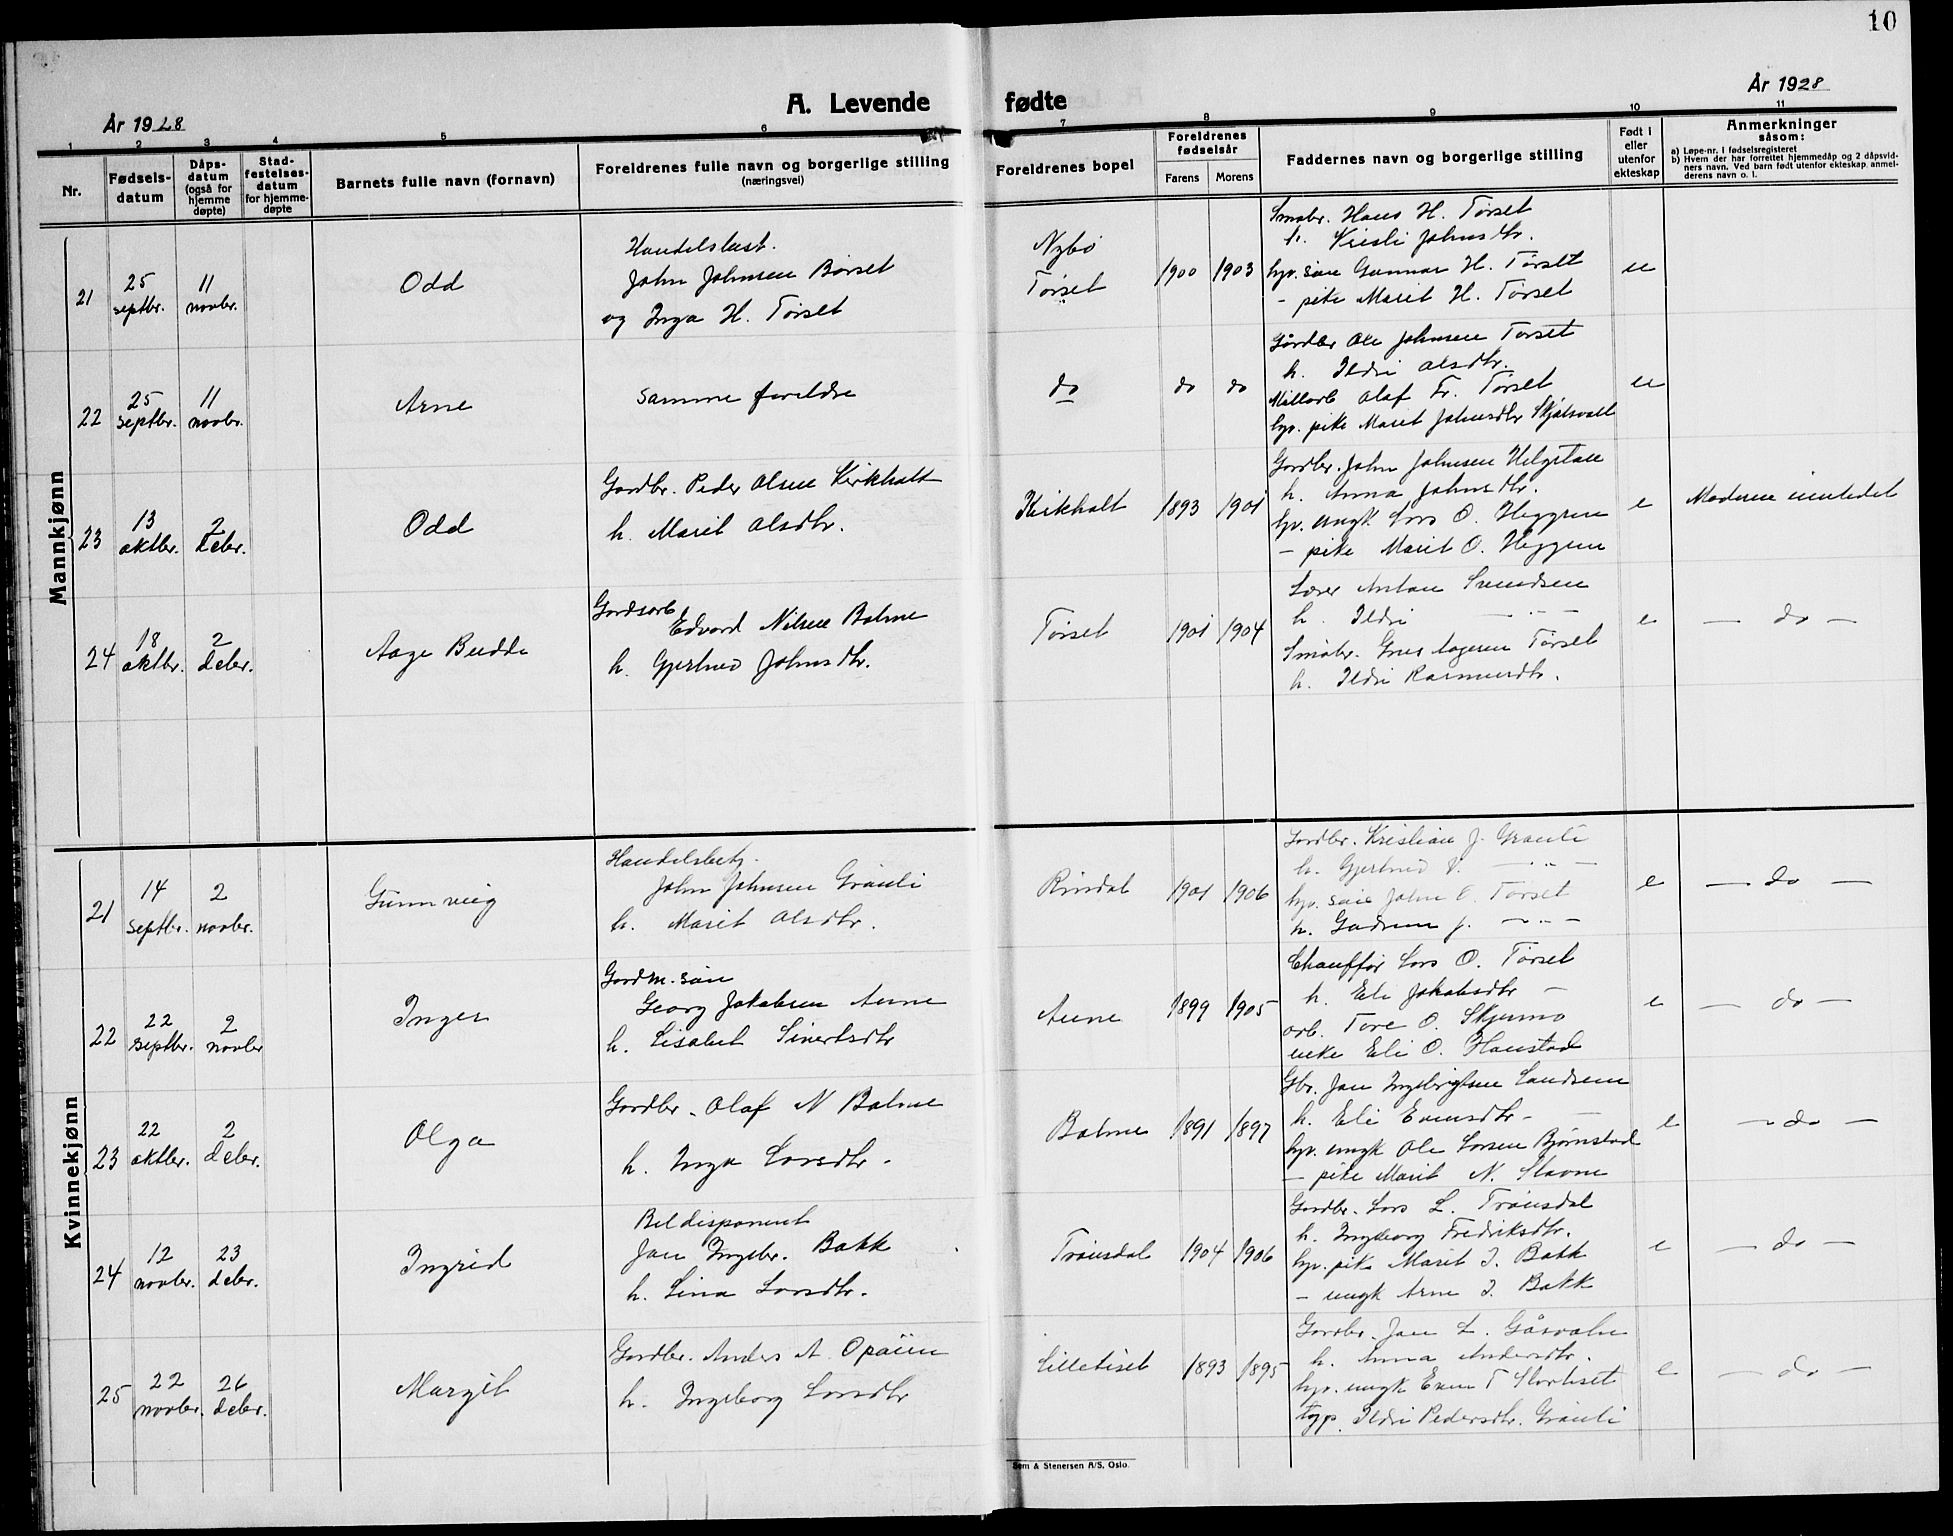 10
År 1928
A. Levende fødte
År 1928
1 2 3 4 5 6 7 8 9 10 11
Nr.
Fødsels-
datum
Dåps-
datum
(også for
hjemme
døpte)
Stad-
festelses-
datum
for hjemme-
døpte
Barnets fulle navn (fornavn)
Foreldrenes fulle navn og borgerlige stilling
(næringsvei)
Foreldrenes bopel
Foreldrenes
fødselsår
Farens Morens
Faddernes navn og borgerlige stilling
Født i
eller
utenfor
ekteskap
Anmerkninger
såsom:
a) Løpe-nr. i fødselsregisteret
b) Hvem der har forrettet hjemmedåp og 2 dåpsvid-
ners navn. Ved barn født utenfor ekteskap. anmel-
derens navn o. l.
Mannkjønn
21
25
septbr.
11
novbr.
Odd
John Johnsen Børset
og Inga H. Tørset
Nybø
Tørset
1900 1903
Smabr. Hans H. Tørset
h. Kirsti Johnsdtr.
hjv. søn Gunnar H. Tørset
- pike Marit H. Tørset
u
22
25
septbr.
11
novbr.
Arne
samme foreldre
do
do do
Gårdbr Ole Johnsen Tørset
h. Ildri Olsdtr.
Olaf Fr. Tørset
hjv. pike Marit Johnsdtr Skjølsvold
u
23
13
oktbr.
2
debr.
Odd
Gardbr. Peder Olsen Kirkholt
h. Marit Olsdtr.
Kirkholt
1893 1901
Gardbr. John Johnsen Helgetun
h. Anna Johnsdtr.
hjv. ungk Lars O. Heggem
- pike Marit O. Heggem
e
Moderen innledet
24
18
oktbr.
2
debr.
Aage Budde
Gardsarb
Edvard Nilsen Bolme
h. Gjertrud Johnsdtr.
Tørset
1901 1904
Lærer Anton Svendsen
h. Ildri - " -
Smabr. Tørset
h. Ildri Rasmusdtr.
e
- do -
Kvinnekjønn
21
14
septbr.
2
novbr.
Gunnveig
Handelsbetj.
John Johnsen Grønli
h. Marit Olsdtr.
Rindal
1901 1906
Gardbr. Kristian J. Grønli
h. Gjertrud - " -
hjv. søn John O. Tørset
h. Gudrun J. - " -
e
- do -
22
22
septbr.
2
novbr
Inger
Gardm. søn
Georg Jakobsen Aune
h. Lisabet Sivertsdtr
Aune
1899 1905
Chauffør Lars O. Tørset
h. Eli Jakobsdtr -
arb. Tore O. Skjermo
enke Eli O. Haustad
e
- do -
23
22
oktbr.
2
debr.
Olga
Gardbr. Olaf N Bolme
h. Inga Larsdtr.
Bolme
1891 1897
Gbr. Jan Ingebrigtsen Landsem
h. Eli Evensdtr. -
hjv. ungk Ole Larsen Bjørnstad
- pike Marit N. Stavne
e
- do -
24
12
novbr.
23
debr.
Ingrid
Beldisponent
Jan Ingebr. Bakk
h. Lina Larsdtr.
Trønsdal
1904 1906
Gardbr. Lars L. Trønsdal
h. Ingeborg Fredriksdtr.
hjv. pike Marit I. Bakk
- ungk Arne I. Bakk
e
- do -
25
22
novbr.
26
debr.
Margit
Gardbr. Anders A. Opøien
h. Ingeborg Larsdtr
Lilletiset
1893 1895
Gardbr. Jan L. Gåsvatn
h. Anna Andersdtr.
hjv. ungk Even T Stortiset
Ildri Pedersdtr. Grønli
e
- do -
Sem & Stenersen A/S, Oslo.